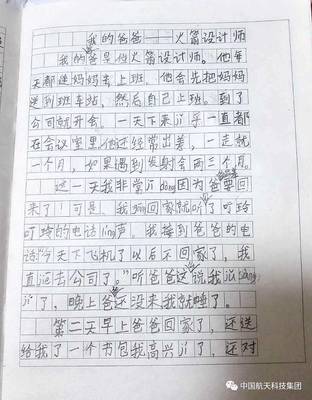 我的爸爸——火箭设计师
我的爸是位火箭设计师。他每
天都送妈妈去上班。他会先把妈妈
送到班车站，然后自己上班。到了
公司就开会。一天下来jǐ乎一直都
在会议室里他还经常出差，一走就
一个月，如果遇到发射会两三个月。
这一天我非常jī dòng因为爸要回
来了！可是，我回家就听了叮玲
叮玲的电话líng声，我接到爸爸的电
话“今天下飞机了以后不回家了，我
直 去公司了。”听爸爸这说我
jí了，晚上爸还没来我就睡了。
第二天早上爸爸回家了，还送
给我了一个书包我高兴jí了，还对
中国航天科技集团